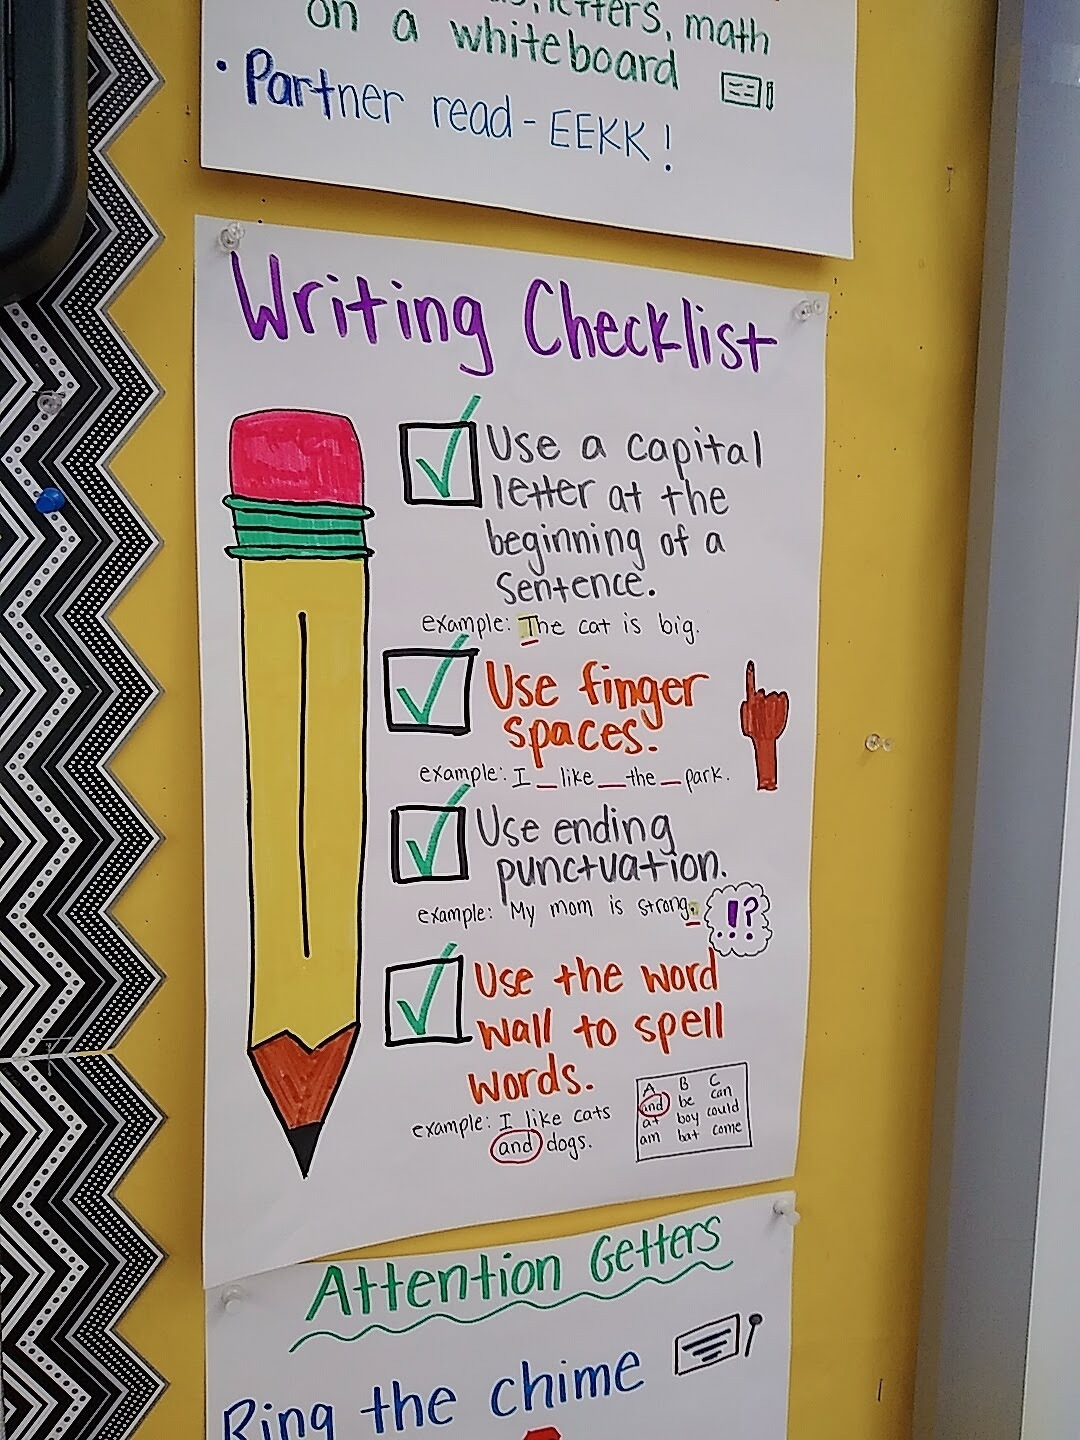 letters, math
on a whiteboard
• Partner read - EEKK!
Writing Checklist
Use a capital
letter at the
beginning of a
sentence.
example: The cat is big.
Use finger
spaces.
example: I _ like _ the _ park.
Use ending
punctuation.
example: My mom is strong.
. ! ?
Use the word
wall to spell
words.
example: I like cats
and dogs.
A B C
and be can
at boy could
am bat come
Attention Getters
Ring the chime